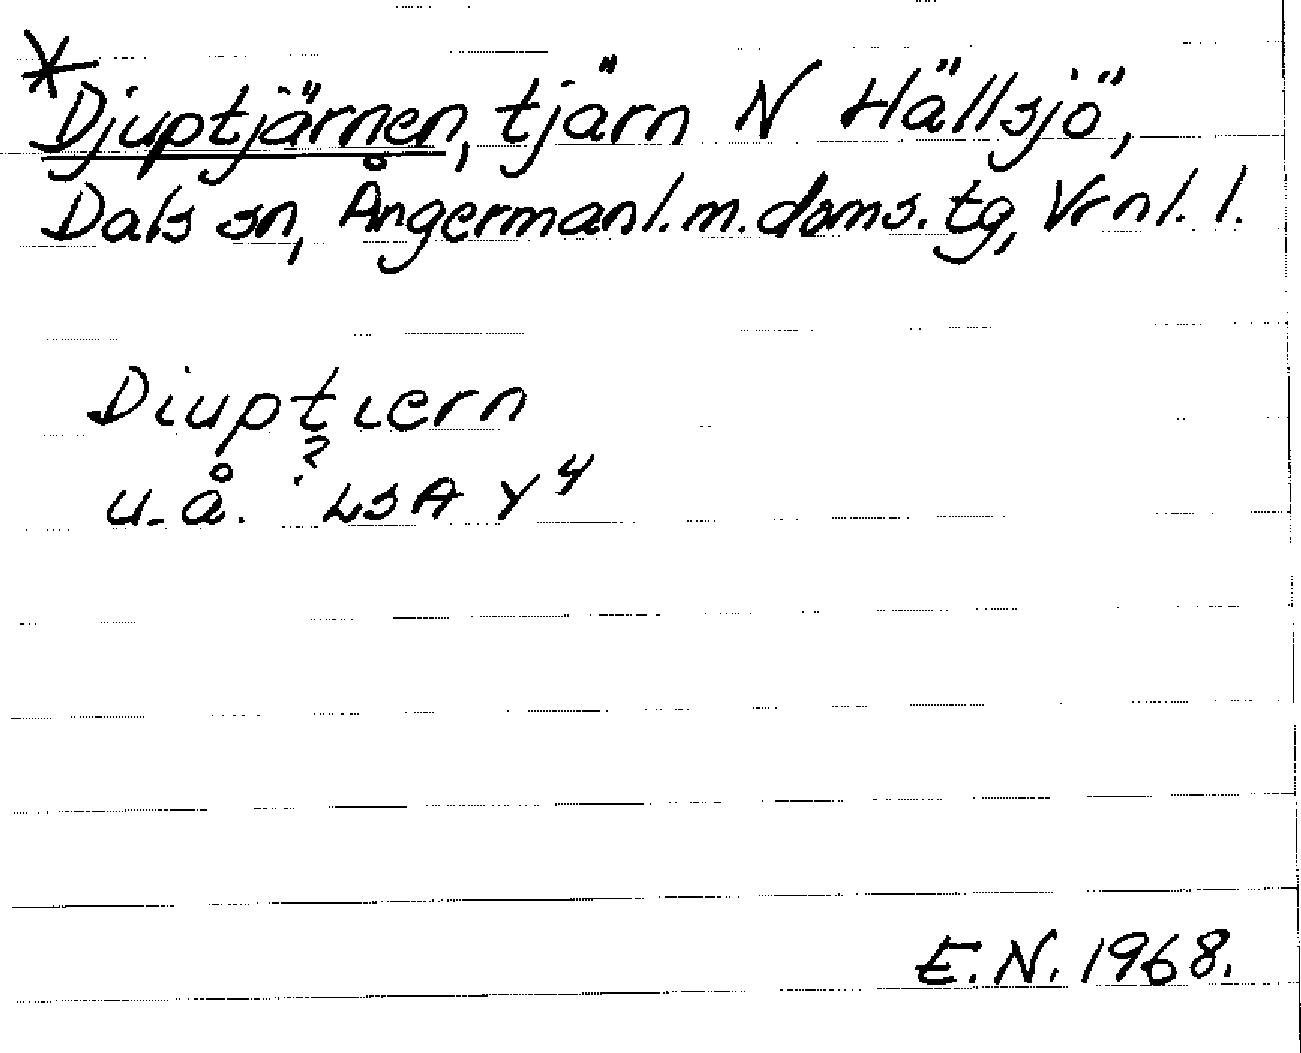 *Djuptjärnen, tjärn N Hällsjö,
Dals sn, Ångermanl. m. doms. tg, Vrnl. l.
Diuptiern
?
u. å. LSA Y4
E. N. 1968.